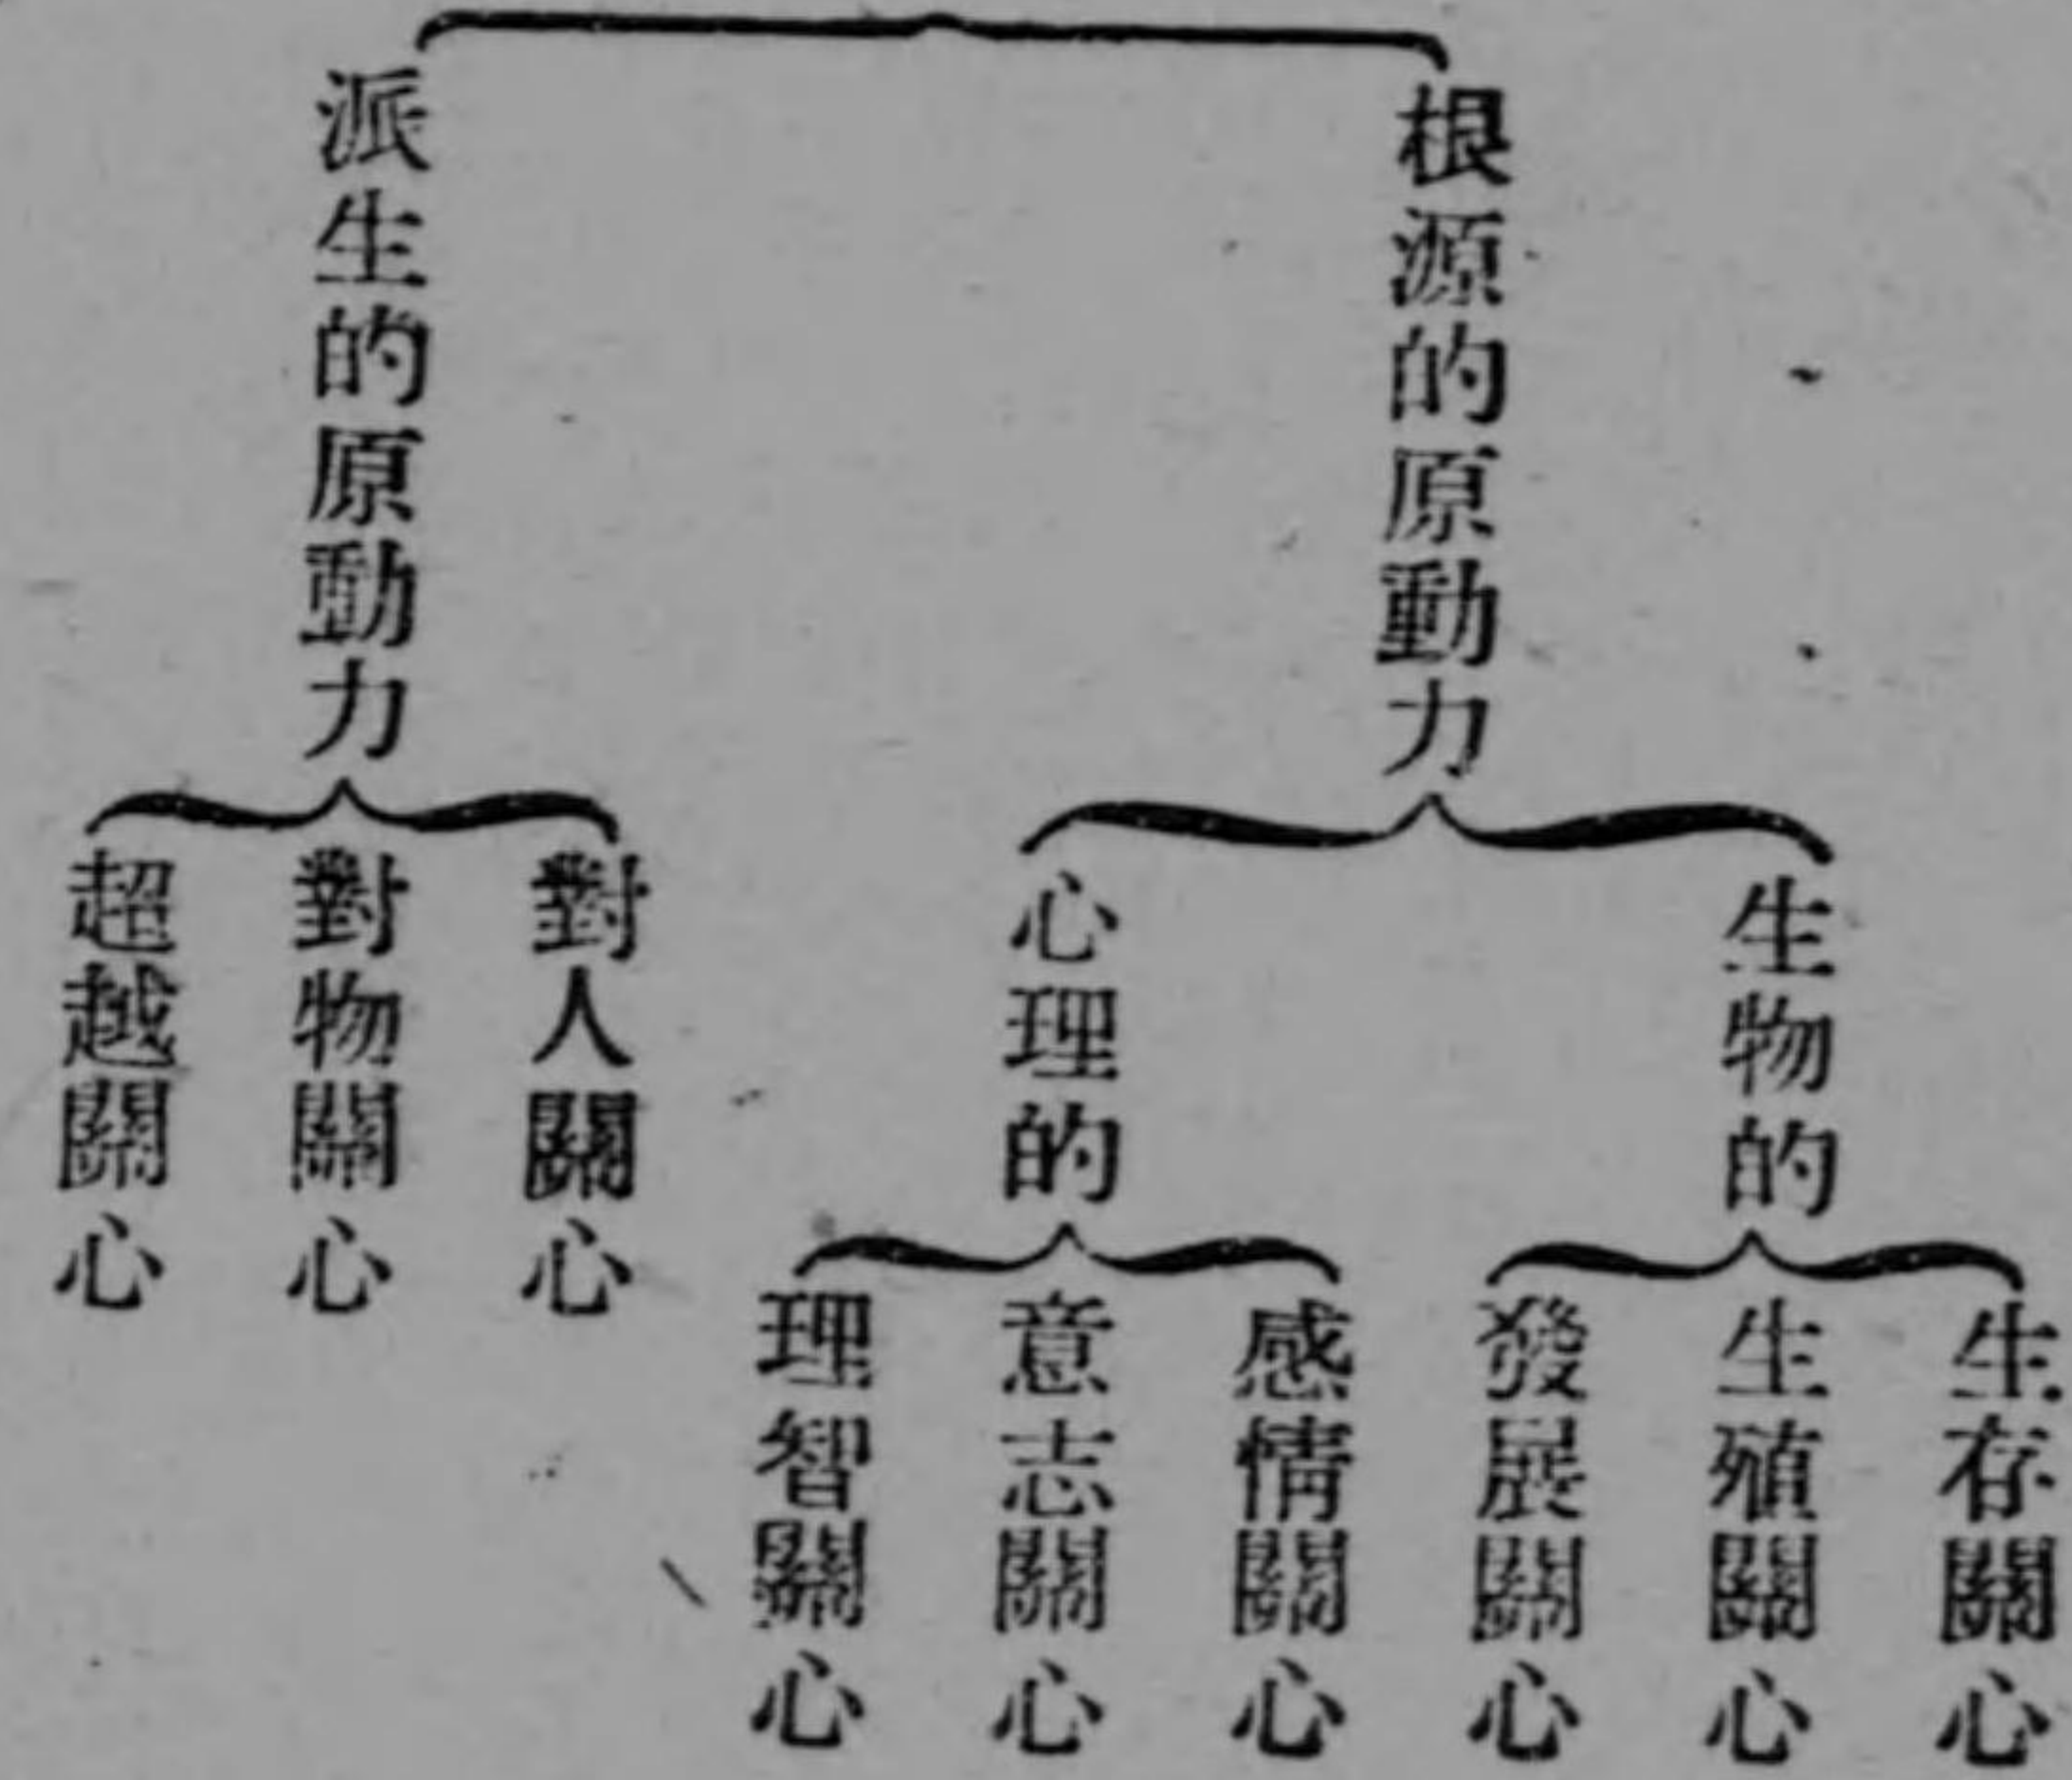 根源的原動力
生物的
生存關心
生殖關心
發展關心
心理的
感情關心
意志關心
理智關心
派生的原動力
對人關心
對物關心
超越關心